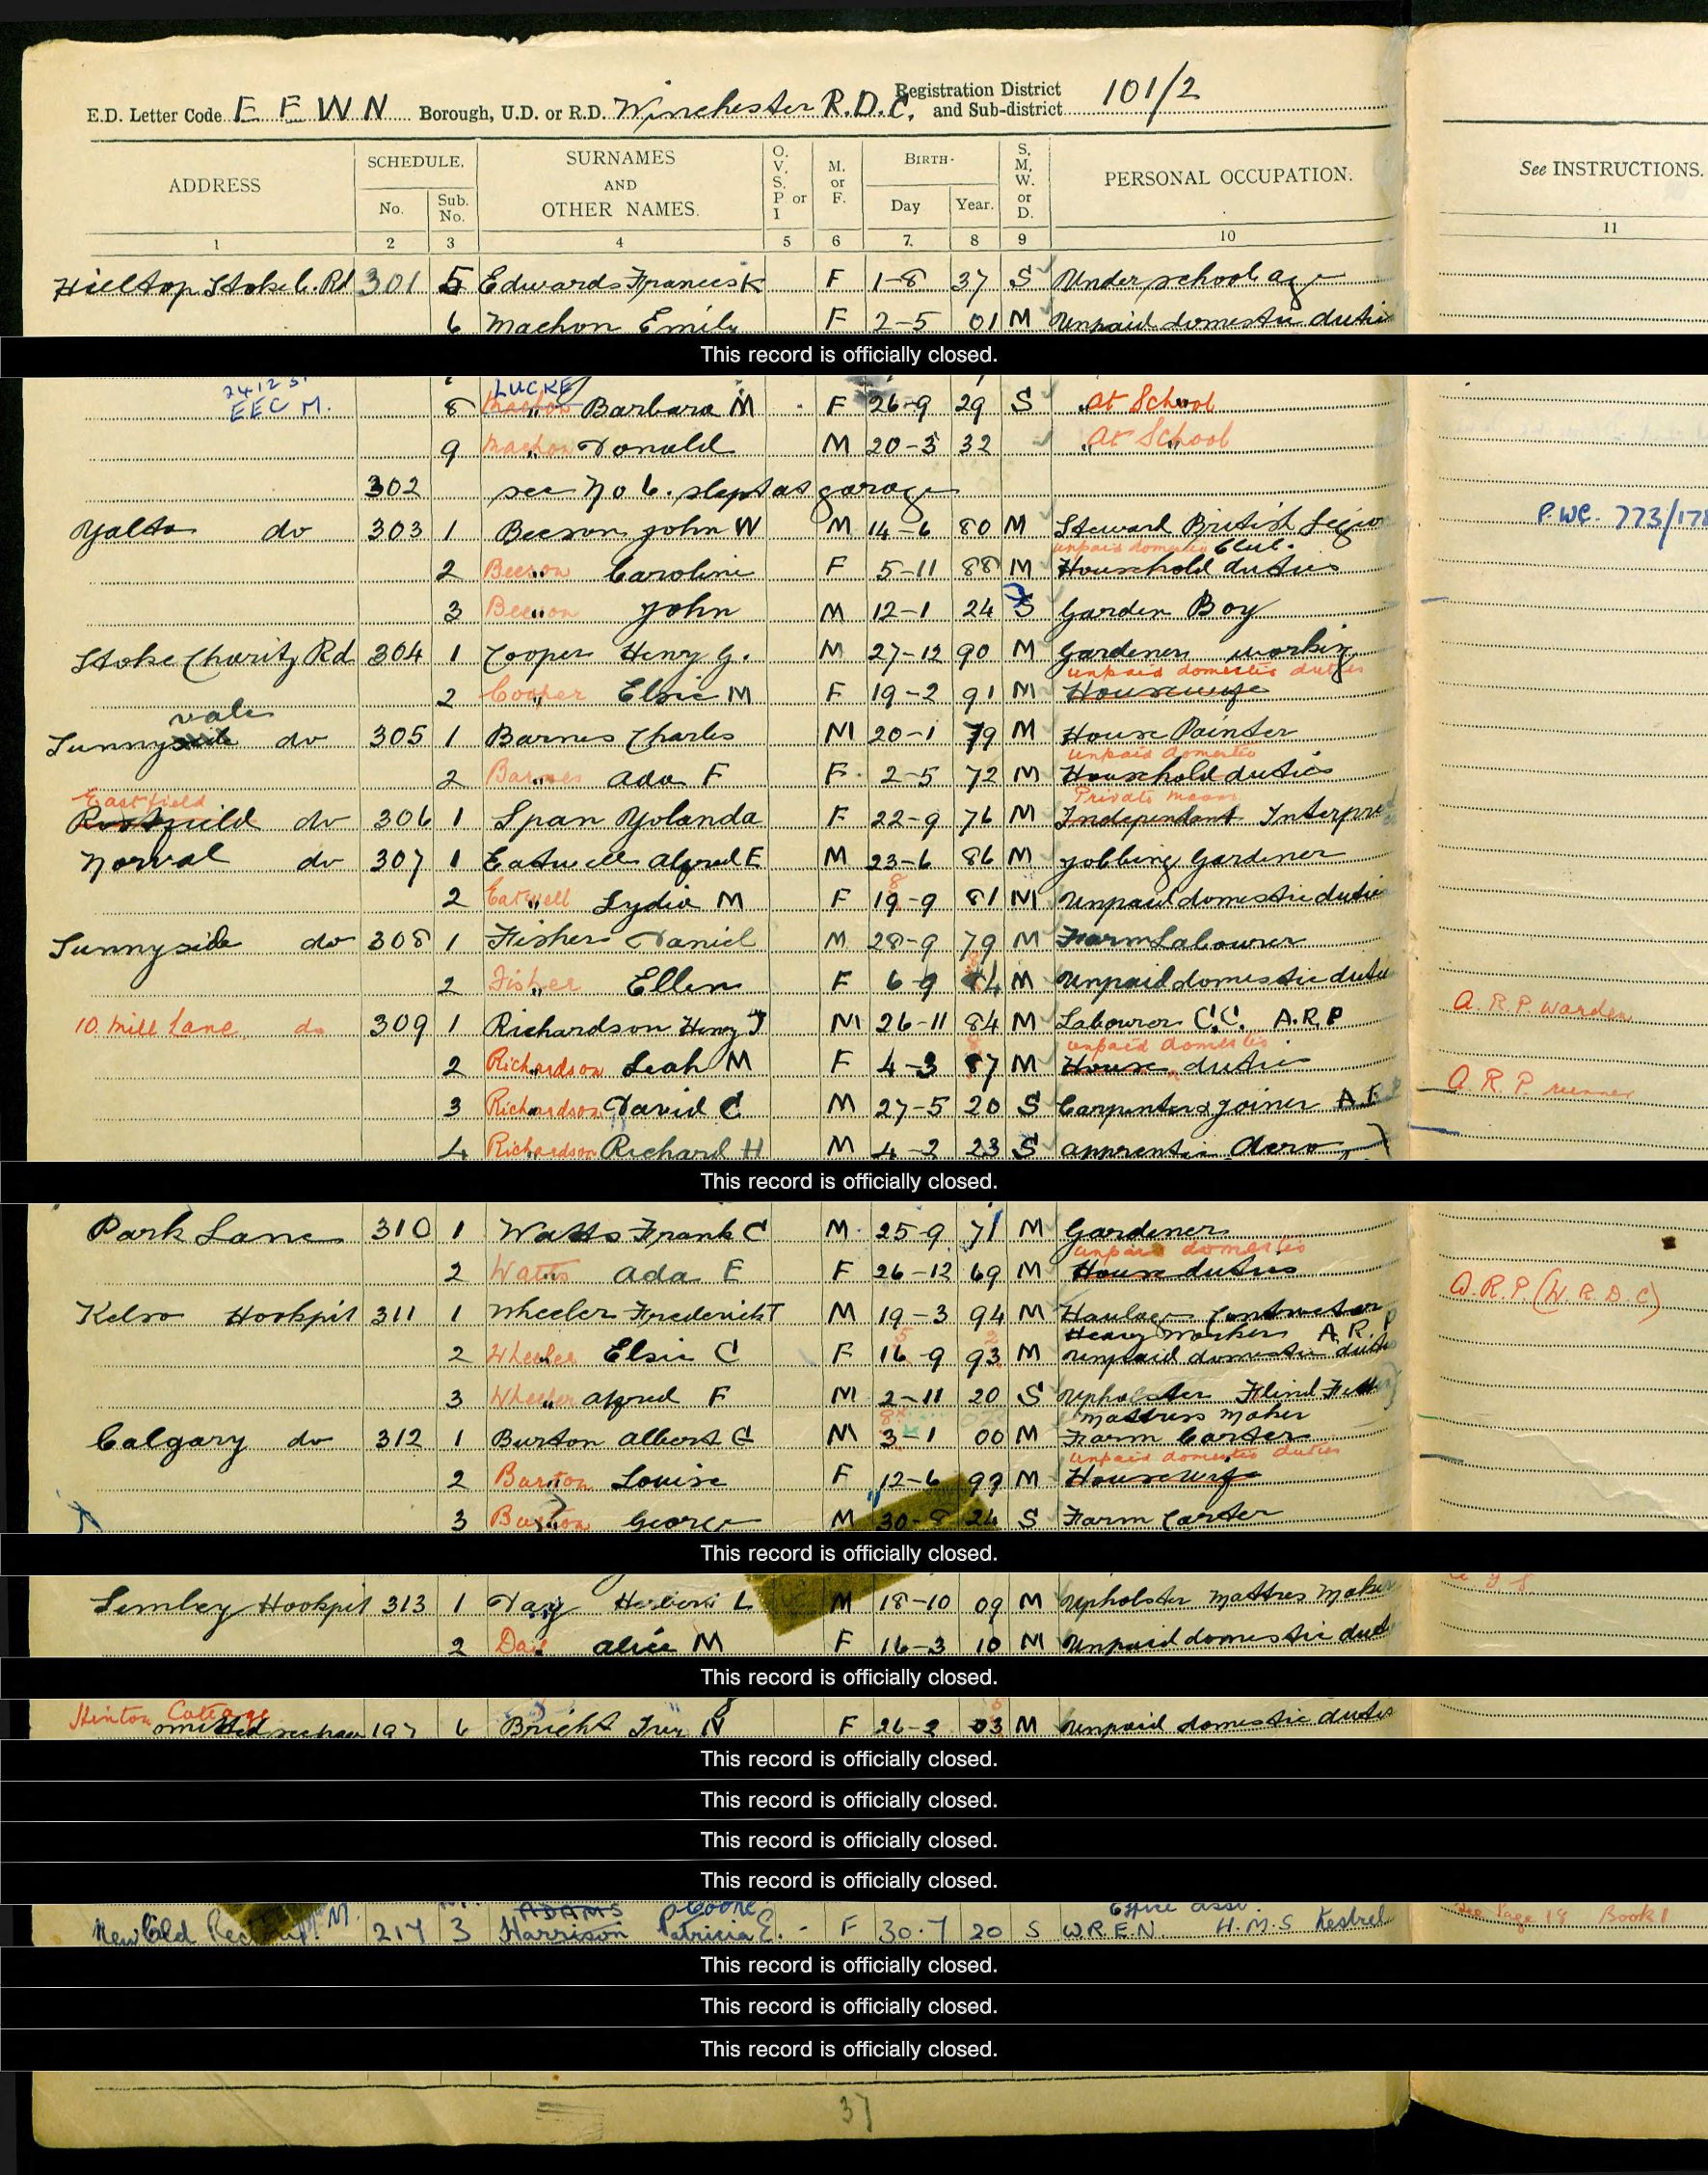 E.D. Letter Code E F W N Borough, U.D. or R.D. Winchester R.D.C. Registration District and Sub-district 101/2
ADDRESS SCHEDULE. SURNAMES AND OTHER NAMES. O. V. S. P or I M. or F. BIRTH- S. M. W. or D. PERSONAL OCCUPATION. See INSTRUCTIONS.
No. Sub. No. Day Year.
1 2 3 4 5 6 7. 8 9 10 11
Hilltop Stoke C. Rd 301 5 Edwards Frances K F 1-8 37 S Under school age
6 Machon Emily F 2-5 01 M Unpaid domestic duties
This record is officially closed.
24 12 51 LUCKEY
EEC M. 8 Machon " Barbara M - F 26-9 29 S " At School
9 Machon " Donald M 20-3 32 " At School
302 see No 6. slept at garage
Yalta do 303 1 Beeson John W M 14-6 80 M Steward British Legion P.W.C. 773/178
unpaid domestic Club.
2 Beeson " Caroline F 5-11 88 M Household duties
3 Beeson " John M 12-1 24 S Garden Boy
Stoke Charity Rd 304 1 Cooper Henry G. M 27-12 90 M Gardener working
unpaid domestic duties
2 Cooper " Elsie M F 19-2 91 M Housewife
vale
Sunnyside do 305 1 Barnes Charles M 20-1 79 M House Painter
unpaid domestic
2 Barnes " Ada F F 2-5 72 M Household duties
Eastfield Private means
do 306 1 Span Yolanda F 22-9 76 M Independent Interpre
Norval do 307 1 Eatwell Alfred E M 23-6 86 M Jobbing Gardener
8
2 Eatwell " Lydia M F 19-9 81 M Unpaid domestic dutie
Sunnyside do 308 1 Fisher Daniel M 28-9 79 M Farm Labourer
2 Fisher " Ellen F 6-9 M Unpaid domestic dutie
10. Mill Lane. do 309 1 Richardson Henry J M 26-11 84 M Labourer C.C. A.R.P A.R.P. Warden
unpaid domestic
2 Richardson " Leah M F 4-3 87 M House duties
3 Richardson David C M 27-5 20 S Carpenter & Joiner A.R.P A.R.P. runner
4 Richardson Richard H M 4-2 23 S apprentice Aero
This record is officially closed.
Park Lane 310 1 Watts Frank C M 25-9 71 M Gardener
unpaid domestic
2 Watts " Ada E F 26-12 69 M House duties
Kelso Hookpit 311 1 Wheeler Frederick T M 19-3 94 M Haulage Contractor A.R.P. (W.R.D.C)
Heavy Worker A.R.P
5 2
2 Wheeler " Elsie C F 16-9 93 M unpaid domestic duties
3 Wheeler " Alfred F M 2-11 20 S Upholster
mattress maker
Calgary do 312 1 Burton Albert G M 3-1 00 M Farm Carter
unpaid domestic duties
2 Burton " Louise F 12-6 99 M Housewife
3 Burton " George M 30-8 24 S Farm Carter
This record is officially closed.
Semley Hookpit 313 1 Day Herbert L M 18-10 09 M Upholster Mattres Maker
2 Day " Alice M F 16-3 10 M Unpaid domestic dut
This record is officially closed.
Hinton Cottage
omitted see page 197 6 Bright Ivy N F 26-2 03 M Unpaid domestic duties
This record is officially closed.
This record is officially closed.
This record is officially closed.
This record is officially closed.
ADAMS Office asst.
New Old Rectory 217 3 Harrison Patricia E. - F 30.7 20 S W.R.E.N. H.M.S Kestrel See Page 18 Book 1
This record is officially closed.
This record is officially closed.
This record is officially closed.
37